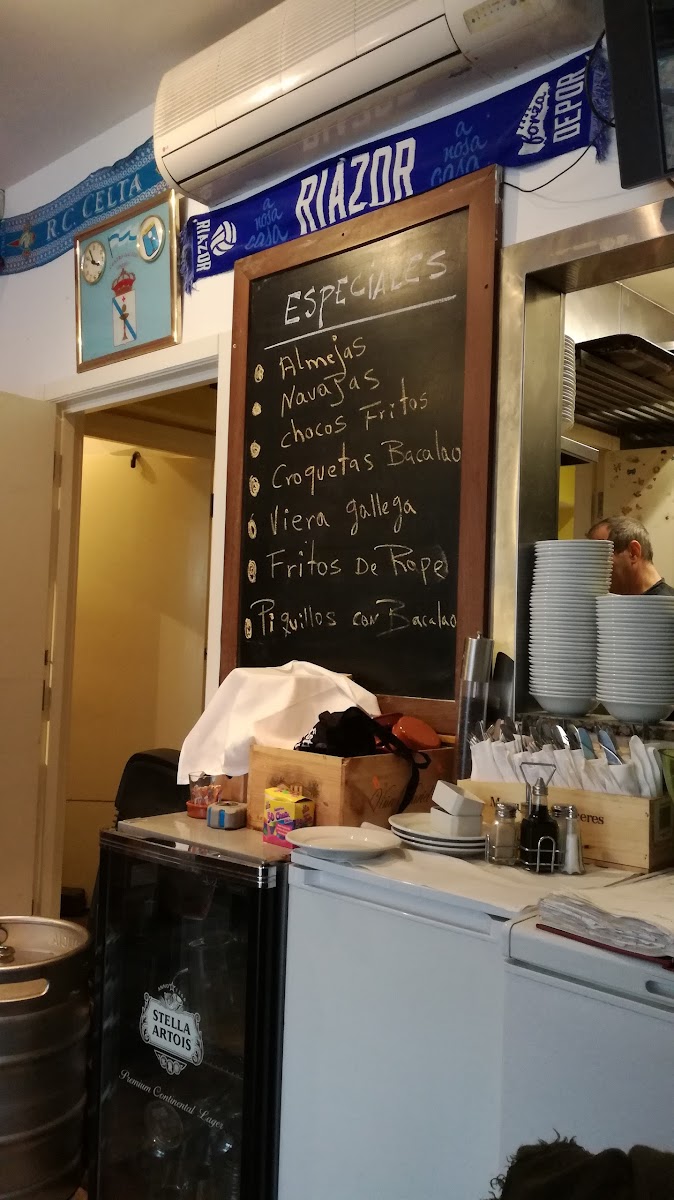 R.C. CELTA
RIAZOR
a nosa casa
RIAZOR
a nosa casa
Fonza
DEPOR
ESPECIALES
Almejas
Navajas
chocos Fritos
Croquetas Bacalao
Viera gallega
Fritos De Rape
Piquillos con Bacalao
STELLA
ARTOIS
Premium Continental Lager